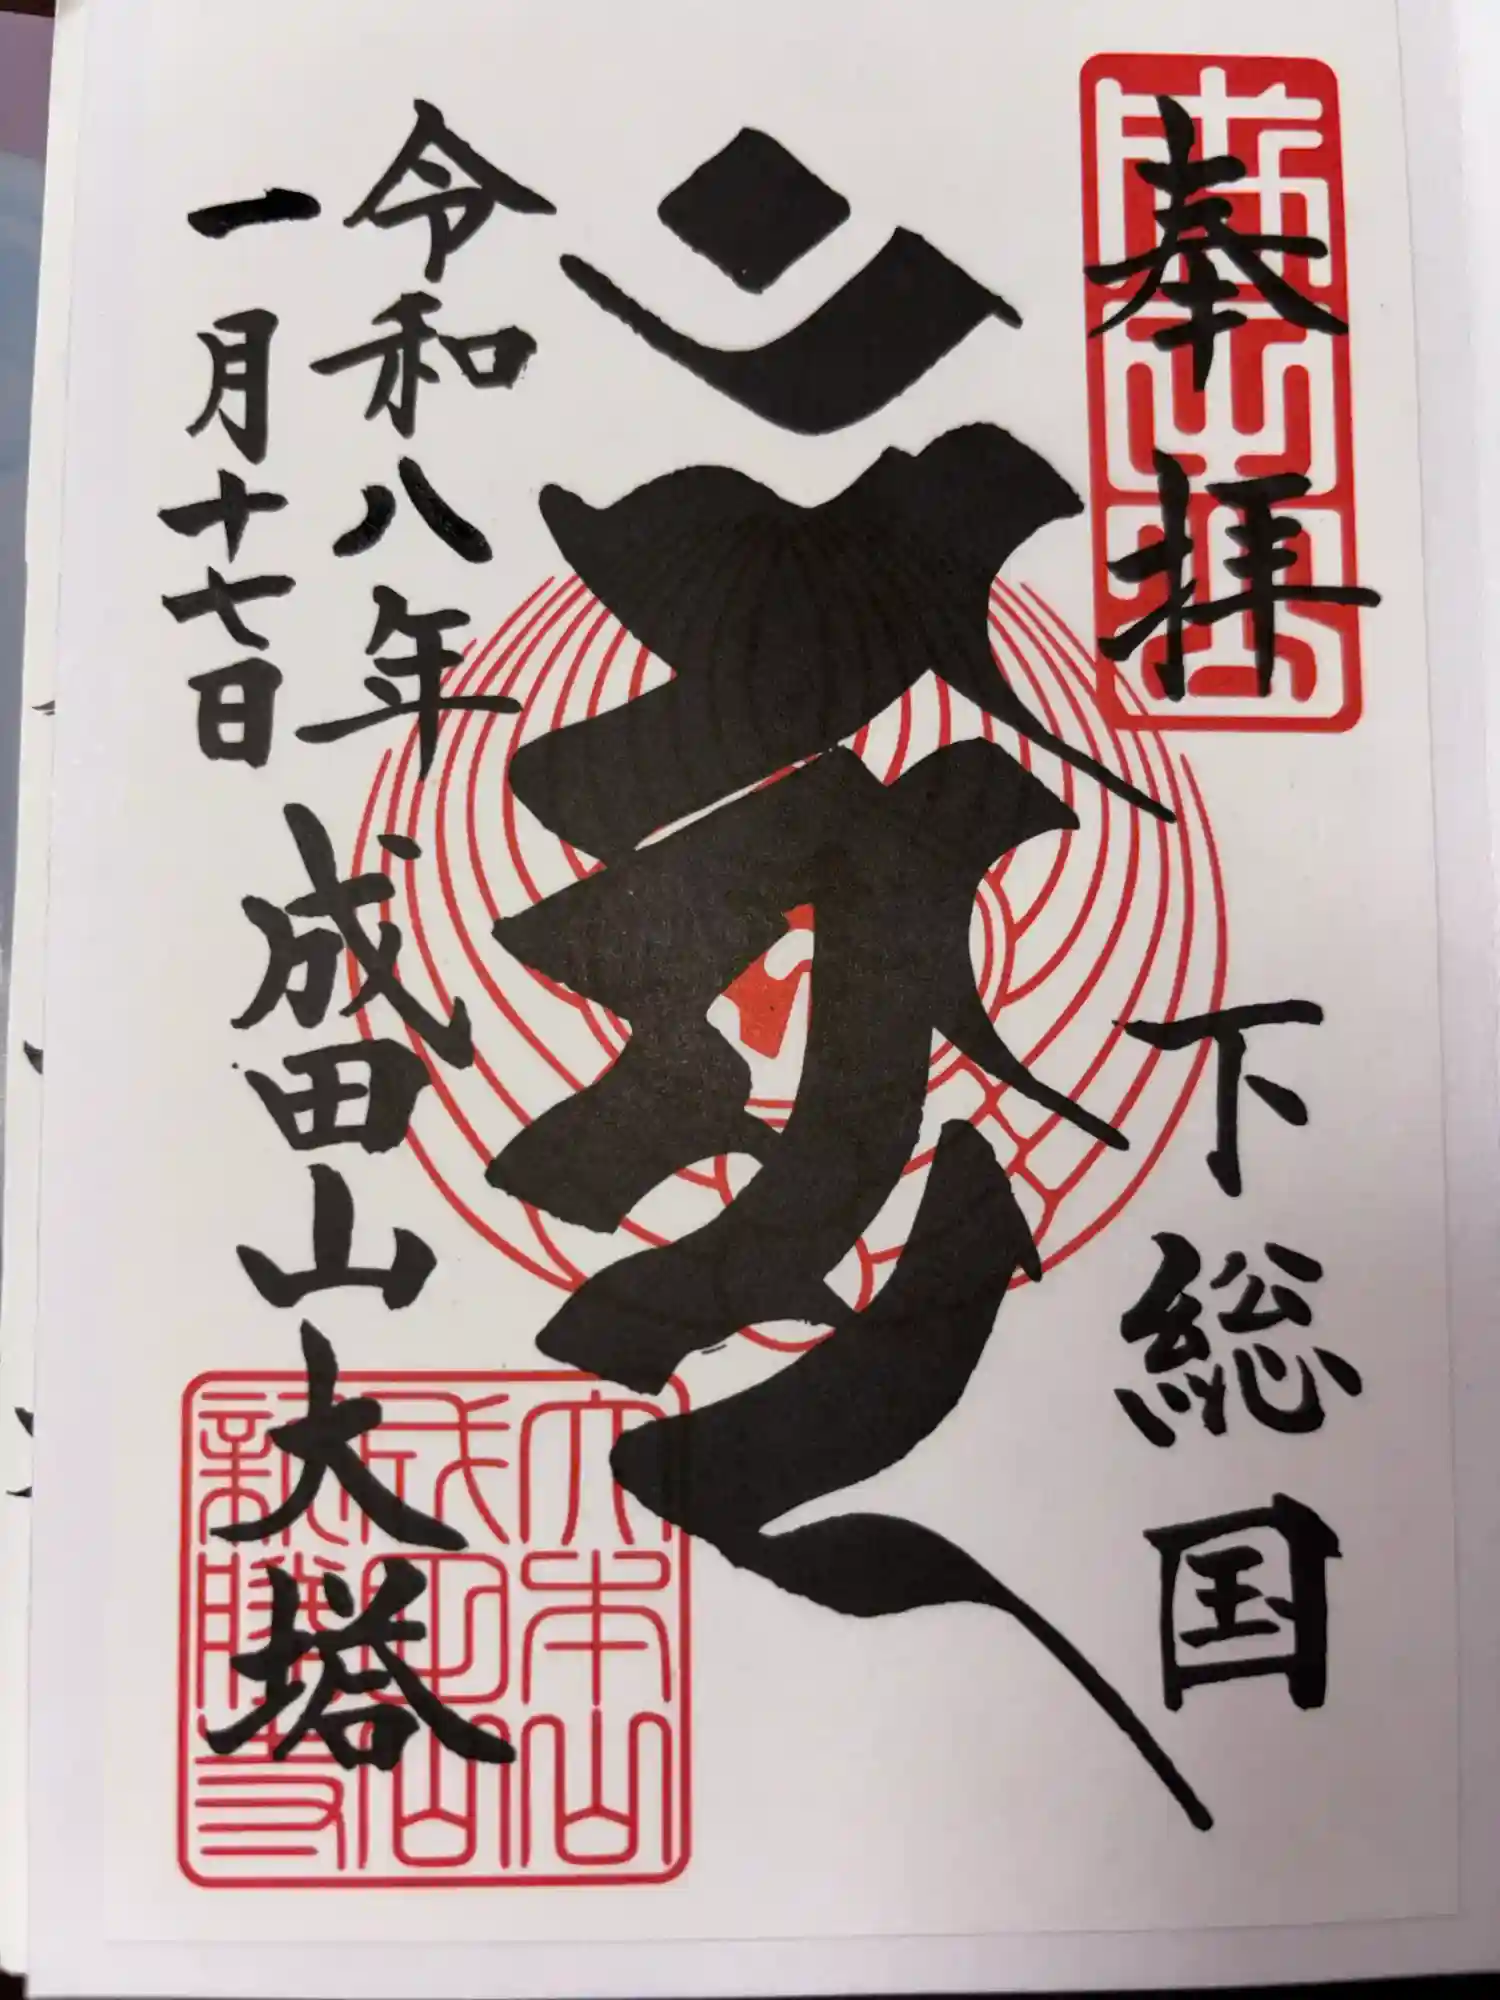 奉拝
成田山
下総国
令和八年
一月十七日
成田山大塔
大本山
成田山
新勝寺